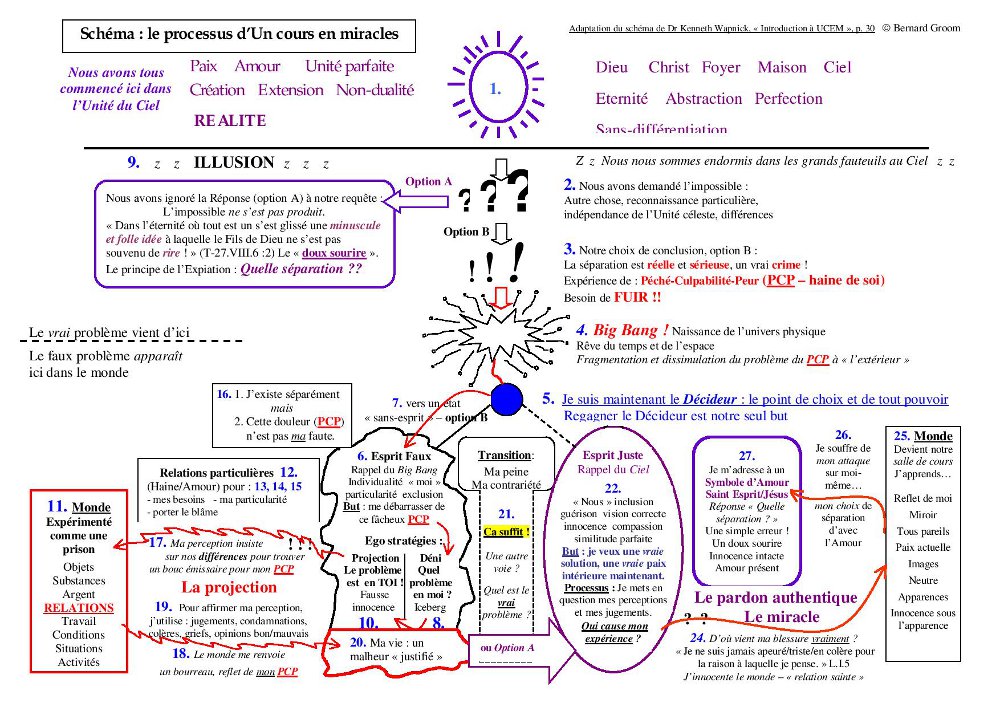 Schéma : le processus d'Un cours en miracles
Adaptation du schéma de Dr Kenneth Wapnick, « Introduction à UCEM », p. 30 © Bernard Groom
Nous avons tous
commencé ici dans
l'Unité du Ciel
Paix Amour Unité parfaite
Création Extension Non-dualité
REALITE
1.
Dieu Christ Foyer Maison Ciel
Eternité Abstraction Perfection
Sans-différentiation
9. z z ILLUSION z z z
Z z Nous nous sommes endormis dans les grands fauteuils au Ciel z z
Nous avons ignoré la Réponse (option A) à notre requête :
L'impossible ne s'est pas produit.
« Dans l'éternité où tout est un s'est glissé une minuscule
et folle idée à laquelle le Fils de Dieu ne s'est pas
souvenu de rire ! » (T-27.VIII.6 :2) Le « doux sourire ».
Le principe de l'Expiation : Quelle séparation ??
Option A
? ? ?
Option B
! ! !
2. Nous avons demandé l'impossible :
Autre chose, reconnaissance particulière,
indépendance de l'Unité céleste, différences
3. Notre choix de conclusion, option B :
La séparation est réelle et sérieuse, un vrai crime !
Expérience de : Péché-Culpabilité-Peur (PCP – haine de soi)
Besoin de FUIR !!
4. Big Bang ! Naissance de l'univers physique
Rêve du temps et de l'espace
Fragmentation et dissimulation du problème du PCP à « l'extérieur »
Le vrai problème vient d'ici
Le faux problème apparaît
ici dans le monde
5. Je suis maintenant le Décideur : le point de choix et de tout pouvoir
Regagner le Décideur est notre seul but
16. 1. J'existe séparément
mais
2. Cette douleur (PCP)
n'est pas ma faute.
7. vers un état
« sans-esprit » – option B
6. Esprit Faux
Rappel du Big Bang
Individualité « moi »
particularité exclusion
But : me débarrasser de
ce fâcheux PCP
Ego stratégies :
Projection
Le problème
est en TOI !
Fausse
innocence
10.
Déni
Quel
problème
en moi ?
Iceberg
8.
20. Ma vie : un
malheur « justifié »
Transition:
Ma peine
Ma contrariété
21.
Ca suffit !
Une autre
voie ?
Quel est le
vrai
problème ?
ou Option A
Esprit Juste
Rappel du Ciel
22.
« Nous » inclusion
guérison vision correcte
innocence compassion
similitude parfaite
But : je veux une vraie
solution, une vraie paix
intérieure maintenant.
Processus : Je mets en
question mes perceptions
et mes jugements.
Qui cause mon
expérience ?
Relations particulières 12.
(Haine/Amour) pour : 13, 14, 15
- mes besoins - ma particularité
- porter le blâme
11. Monde
Expérimenté
comme une
prison
Objets
Substances
Argent
RELATIONS
Travail
Conditions
Situations
Activités
17. Ma perception insiste ! ! !
sur nos différences pour trouver
un bouc émissaire pour mon PCP
La projection
19. Pour affirmer ma perception,
j'utilise : jugements, condamnations,
colères, griefs, opinions bon/mauvais
18. Le monde me renvoie
un bourreau, reflet de mon PCP
27.
Je m'adresse à un
Symbole d'Amour
Saint Esprit/Jésus
Réponse « Quelle
séparation ? »
Une simple erreur !
Un doux sourire
Innocence intacte
Amour présent
26.
Je souffre de
mon attaque
sur moi-
même…
mon choix de
séparation
d'avec
l'Amour
25. Monde
Devient notre
salle de cours
J'apprends…
Reflet de moi
Miroir
Tous pareils
Paix actuelle
Images
Neutre
Apparences
Innocence sous
l'apparence
Le pardon authentique
Le miracle
? ?
24. D'où vient ma blessure vraiment ?
« Je ne suis jamais apeuré/triste/en colère pour
la raison à laquelle je pense. » L.I.5
J'innocente le monde – « relation sainte »